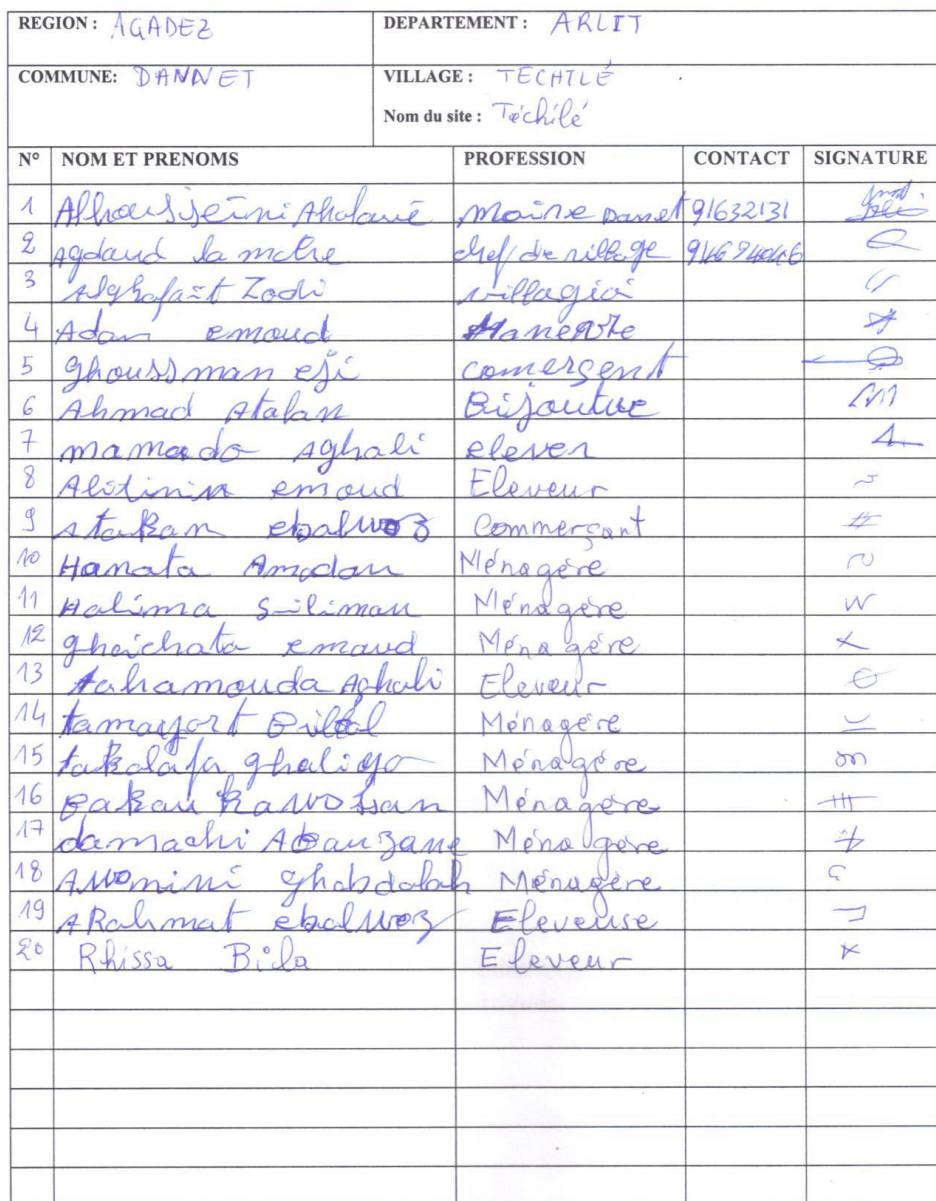 REGION : AGADEZ DEPARTEMENT : ARLIT
COMMUNE: DANNET VILLAGE : TECHILÉ
Nom du site : Téchilé
N° NOM ET PRENOMS PROFESSION CONTACT SIGNATURE
1 Alhousseini Maire Danet 91632131
2 Agdaud la motre chef de village
3 Alghafait Zodi
4 Adan emoud
5 ghoussman eji comersent
6 Ahmad Atalan Bijoutue
7 mamado Aghali elever
8 emoud Eleveur
9 Atakan ebalwoz Commerçant
10 Hanata Amodan Ménagère
11 Halima Siliman Ménagère
12 ghaichata emaud Ménagère
13 tahamouda Aghali Eleveur
14 tamayort Bilal Ménagère
15 takolafa ghaligo Ménagère
16 Bakau kawossan Ménagère
17 damachi Abauzane Ménagère
18 Awomini ghabdalah Ménagère
19 ARahmat ebalwoz Eleveuse
20 Rhissa Bila Eleveur